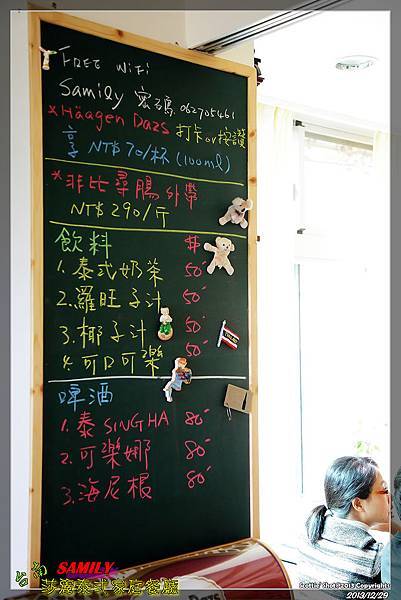 FREE WiFi
Samily 密碼 062705461
*Häagen Dazs 打卡or按讚
享 NT$ 70/杯 (100ml)
*非比尋腸 外帶
NT$ 290/斤
飲料 $
1. 泰式奶茶 50
2. 羅旺子汁 50
3. 椰子汁 50
4. 可口可樂 50
啤酒
1. 泰 SINGHA 80
2. 可樂娜 80
3. 海尼根 80
SAMILY
莎蜜泰式家庭餐廳
2013/12/29